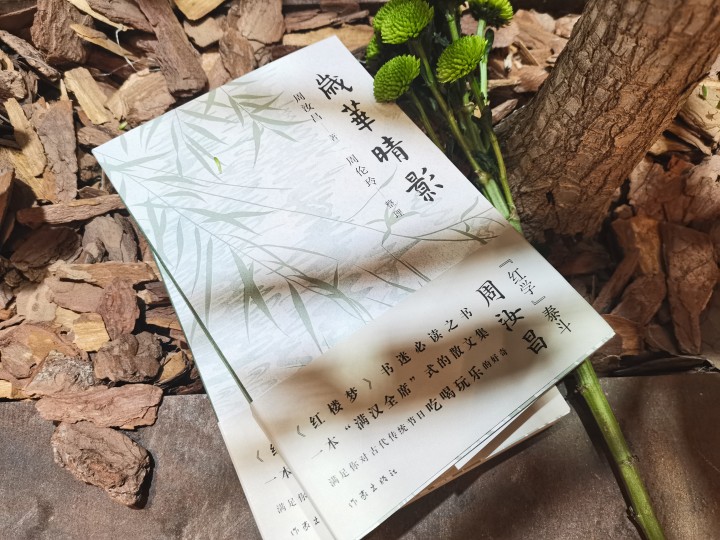 歲華晴影
周汝昌 著
周伦玲 整理
『红学』泰斗
周汝昌
《红楼梦》书迷必读之书
一本“满汉全席”式的散文集
满足你对古代传统节日吃喝玩乐的好奇
作家出版社
《红
一本“
满足你
作家出